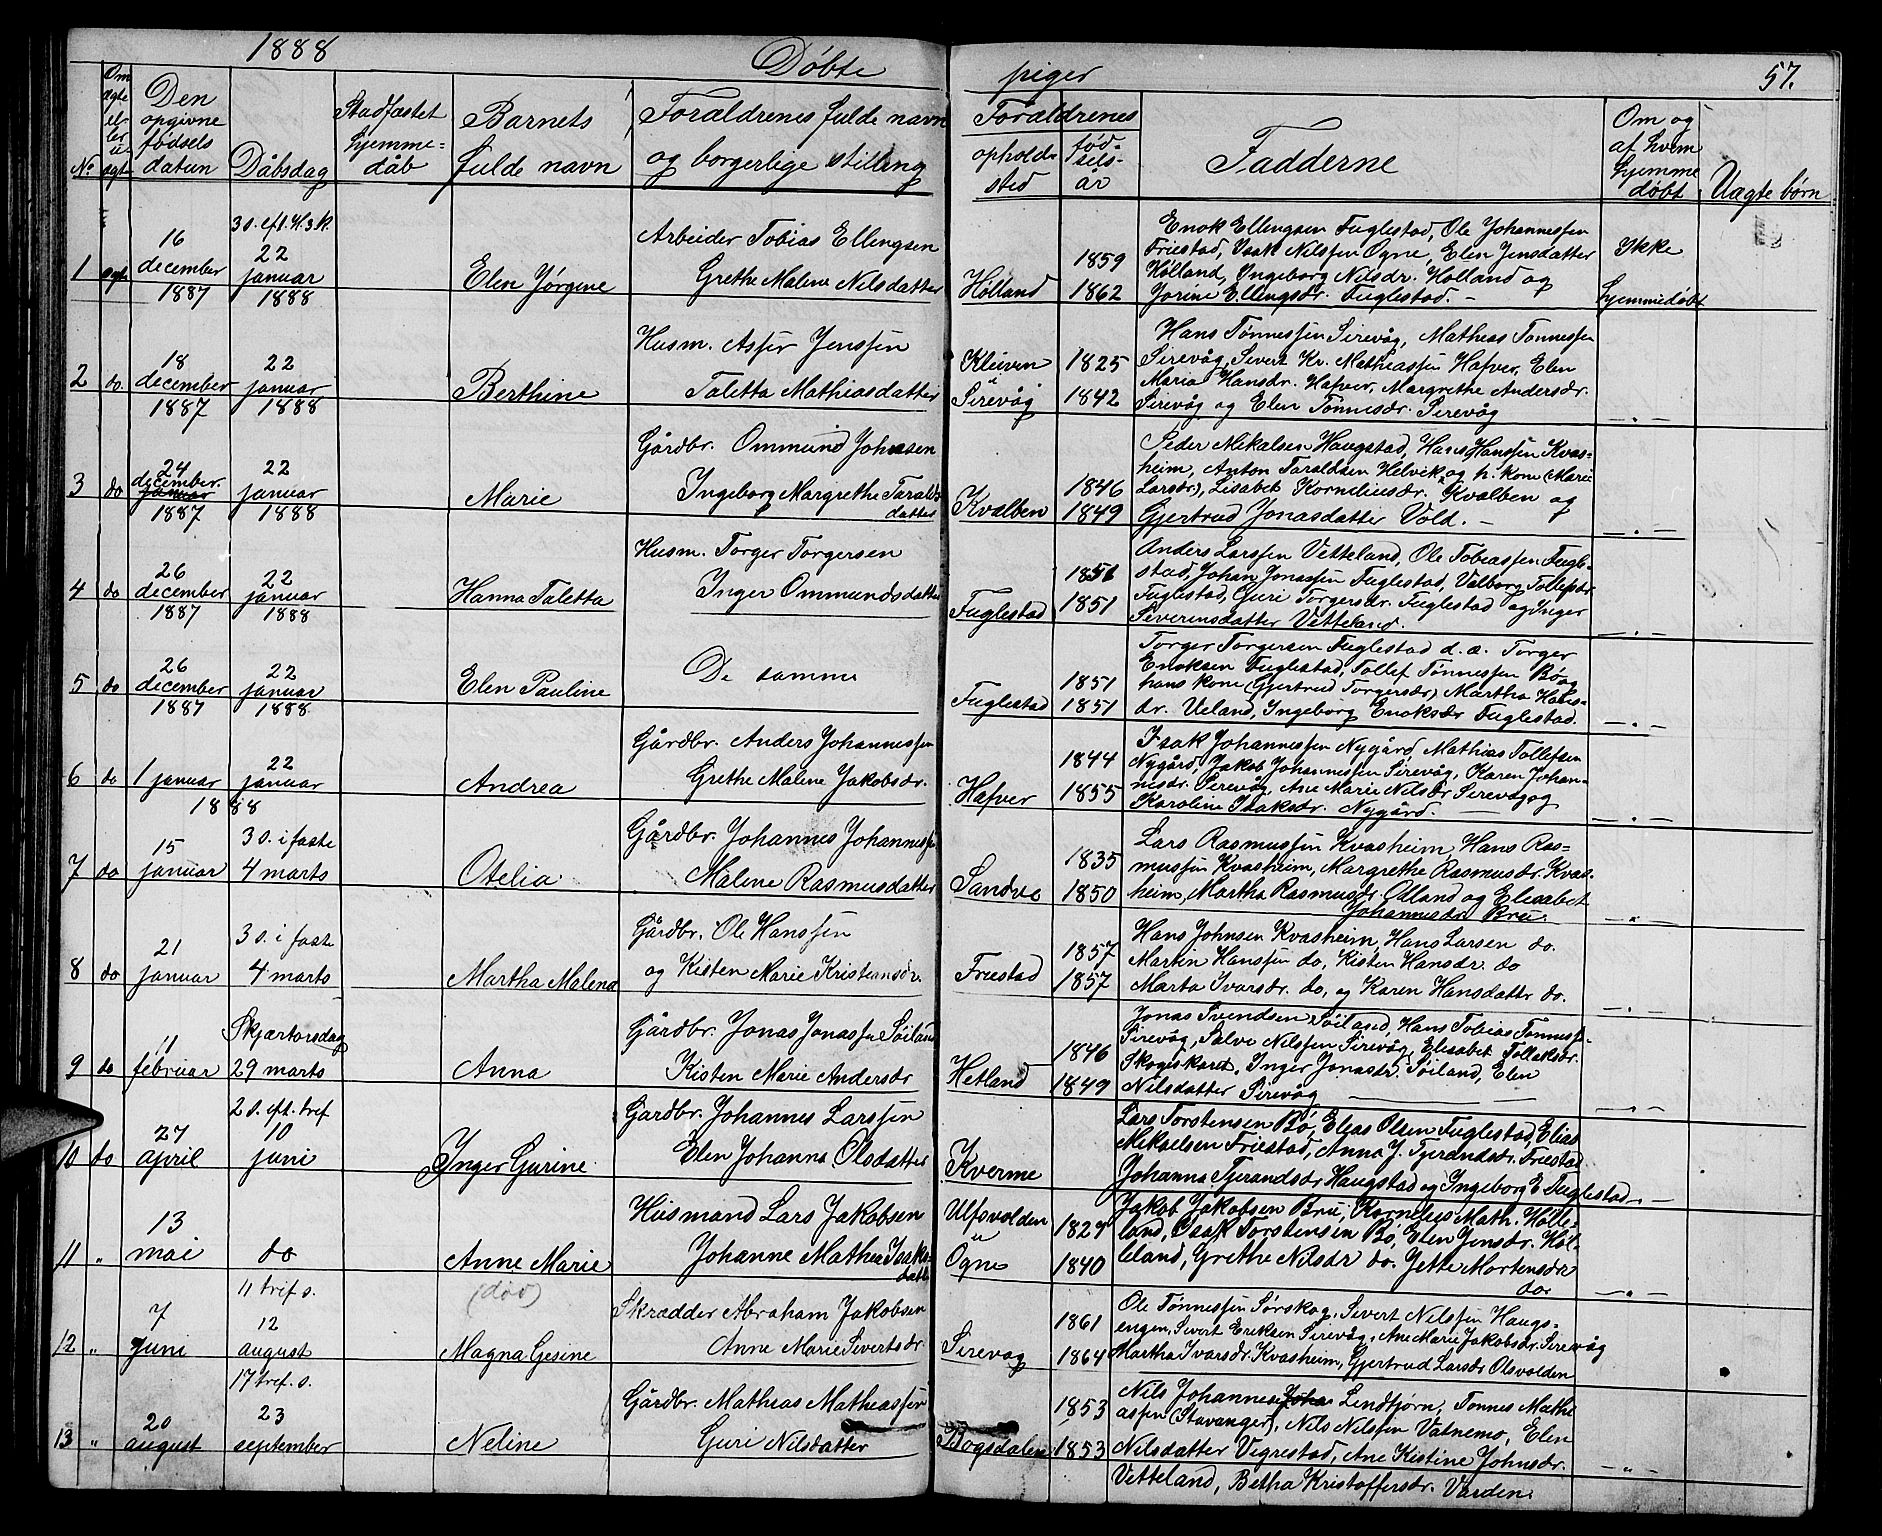 1888 Døbte piger 57.
No
Om ægte eller uægt
Den opgivne fødsels datum
Dåbsdag
Stadfæstet hjemme=dåb
Barnets fulde navn
Forældrenes fulde navn og borgerlige stilling
Forældrenes
opholdssted
fødselsår
Fadderne
Om og af hvem hjemme døbt
Uægte børn
1 ægt 16 december 1887
3 s. eft. H. 3 K. 22 januar 1888
Elen Jørgine
Arbeider Tobias Ellengsen
Grethe Malene Nilsdatter
Hølland 1859 1862
Enok Ellengsen Fuglestad, Ole Johannessen
Friestad, Isak Nilssen Ogne, Elen Jensdatter
Hølland, Ingeborg Nilsdr. Hølland og
Jorine Ellengsdr. Fuglestad. –
Ikke hjemmedøbt
2 do 18 december 1887
22 januar 1888
Berthine
Husm. Asser Jenssen
Taletta Mathiasdatter
Kleiven
u
Sirevåg 1825 1842
Hans Tønnessen Sirevåg, Mathias Tønnessen
Sirevåg, Sivert Kr. Mathiassen Hafver, Elen
Maria Hansdr. Hafver, Margrethe Andersdr.
Sirevåg og Elen Tønnesdr. Sirevåg
– " –
3 do 24 december januar 1887
22 januar 1888
Marie
Gårdbr. Ommund Johnsen
Ingeborg Margrethe Taralds
datter
Kvalben 1846 1849
Peder Mikalsen Haugstad, Hans Hanssen Kvas=
heim, Anton Taraldsen Helvik og h. kone (Marie
Larsdr.), Lisabet Korneliusdr. Kvalben og
Gjertrud Jonasdatter Vold. –
– " –
4 do 26 december 1887
22 januar 1888
Hanna Taletta
Husm. Torger Torgersen
Inger Ommundsdatter
Fuglestad 1851 1851
Anders Larssen Vetteland, Ole Tobiassen Fugle-
stad, Johan Jonassen Fuglestad, Valborg Tollefsdr.
Fuglestad, Guri Torgersdr. Fuglestad og Inger
Severinsdatter Vetteland.
– " –
5 do 26 december 1887
22 januar 1888
Elen Pauline
De samme
Fuglestad 1851 1851
Torger Torgersen Fuglestad d.æ. Torger
Enoksen Fuglestad, Tollef Tønnessen Bø og
hans kone (Gjertrud Torgersdr) Martha Hans-
dr. Ueland, Ingeborg Enoksdr Fuglestad.
– " –
6 do 1 januar 1888
22 januar
Andrea
Gårdbr. Anders Johannessen
Grethe Malene Jakobsdr.
Hafver 1844 1855
Isak Johannessen Nygård Mathias Tollefsen
Nygård, Jakob Johannessen Sirevåg, Karen Johan-
nesdr. Sirevåg, Ane Marie Nilsdr Sirevåg og
Karoline Isaksdr. Nygård. –
– " –
7 do 15 januar
3 s. i faste 4 marts
Otelia
Gårdbr. Johannes Johannessen
Malene Rasmusdatter
Sandve 1835 1850
Lars Rasmussen Kvasheim, Hans Ras=
mussen Kvasheim, Margrethe Rasmusdr. Kvas-
heim, Martha Rasmusdr. Ødland og Elisabet
Johannesdr Bru.
– " –
8 do 21 januar
3 s. i faste 4 marts
Martha Malena
Gårdbr. Ole Hanssen
og Kisten Marie Kristiansdr.
Friestad 1857 1857
Hans Johnsen Kvasheim, Hans Larsen do.
Martin Hanssen do, Kisten Hansdr. do
Marta Ivarsdr. do, og Karen Hansdattr do.
– " –
9 do 11 februar
Skjærtorsdag 29 marts
Anna
Gårdbr. Jonas Jonassen Søiland
Kisten Marie Andersdr
Hetland 1846 1849
Jonas Svendsen Søiland, Hans Tobias Tønness.
Sirevåg, Salve Nilssen Sirevåg, Elisabet Tollaksdr.
Skogiskaret, Inger Jonasdr. Søiland, Elen
Nilsdatter Sirevåg –
– " –
10 do 27 april
2 s. eft. tref. 10 juni
Inger Gurine
Gårdbr. Johannes Larssen
Elen Johanna Olsdatter
Kverme
Lars Torstensen Bø, Elias Olsen Fuglestad, Elias
Mikaelsen Friestad, Anna J. Tjerandsdr. Friestad
Johanna Tjerandsdr Haugstad og Ingeborg E Fuglestad
– " –
11 " 13 mai
do
Anne Marie
(død)
Husmand Lars Jakobsen
Johanne Mathea Isaks
datter
Ulfsvolden
u
Ogne 1829 1840
Jakob Jakobsen Bru, Kornelius Math. Hølle-
land, Isak Torstensen Bø, Elen Jensdr. Høl-
leland, Grethe Nilsdr do. Jette Mortensdr
do.
– " –
12 " 7 juni
11 tref s. 12 august
Magna Gesine
Skrædder Abraham Jakobsen
Anne Marie Sivertsdr.
Sirevåg 1861 1864
Ole Tønnessen Sørskog, Sivert Nilssen Haugs=
engen, Sivert Eriksen Sirevåg, Ane Marie Jakobsdr. Sirevåg
Martha Ivarsdr. Kvasheim, Gjertrud Larsdr Olsvolden
13 " 20 august
17 tref. s. 23 september
Neline
Gårdbr. Mathias Mathiassen
Guri Nilsdatter
Bogsdalen 1853 1853
Nils Johannes Lindtjørn, Tønnes Mathi
assen (Stavanger), Nils Nilssen Vatnemo, Elen
Nilsdatter Vigrestad, Ane Kistine Johnsdr.
Vetteland, Betha Kristoffersdr. Varden.
– " –